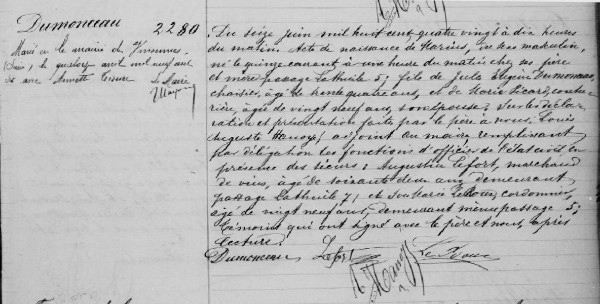 Dumonceau
2280
Marié à la mairie de Vincennes,
le quatorze avril mil neuf cent
six avec Annette
Le Maire
Du seize juin mil huit cent quatre vingt à dix heures
du matin. Acte de naissance de Marius, du sexe masculin,
né le quinze courant à une heure du matin chez ses père
et mère passage Lathuile 5; fils de Jules Eugène Dumonceau,
âgé de trente quatre ans, et de Marie Sicard, coutu-
rière, âgée de vingt neuf ans, son épouse. Sur la décla-
ration et présentation faite par le père à nous, Louis
Auguste Hanoye, adjoint au maire remplissant
par délégation les fonctions d'officier de l'état civil en
présence des sieurs: Augustin Lefort, marchand
de vins, âgé de soixante deux ans, demeurant
passage Lathuile 7, et cordonnier,
âgé de vingt neuf ans, demeurant même passage 5;
témoins qui ont signé avec le père et nous, après
lecture.
Dumonceau Lefort
Hanoye